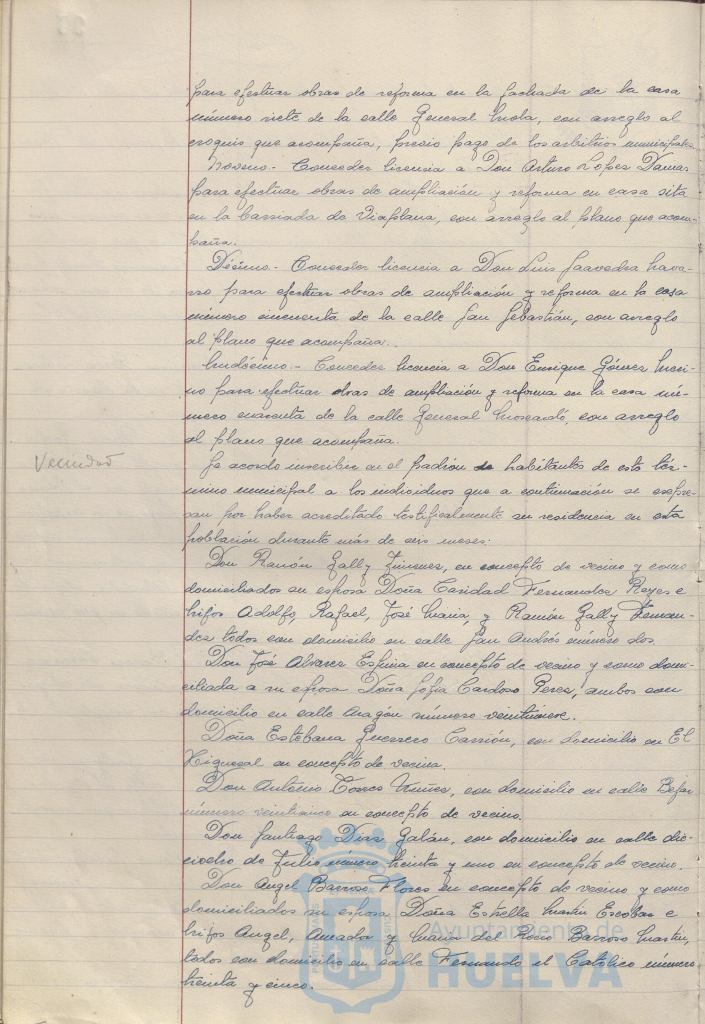 para efectuar obras de reforma en la fachada de la casa
número siete de la calle General Mola, con arreglo al
croquis que acompaña, previo pago de los arbitrios municipales.
Noveno.- Conceder licencia a Don Arturo López Damas
para efectuar obras de ampliación y reforma en casa sita
en la barriada de Viaplana, con arreglo al plano que acom-
paña.
Décimo.- Conceder licencia a Don Luis Saavedra Nava-
rro para efectuar obras de ampliación y reforma en la casa
número cincuenta de la calle San Sebastián, con arreglo
al plano que acompaña.
Undécimo.- Conceder licencia a Don Enrique Gómez Meri-
no para efectuar obras de ampliación y reforma en la casa nú-
mero cuarenta de la calle General Moscardó, con arreglo
al plano que acompaña.
Vecindad
Se acordó inscribir en el padrón de habitantes de este tér-
mino municipal a los individuos que a continuación se expre-
san por haber acreditado testificalmente su residencia en esta
población durante más de seis meses:
Don Ramón Gally Jimenez, en concepto de vecino y como
domiciliados su esposa Doña Caridad Fernandez Reyes e
hijos Adolfo, Rafael, José María, y Ramón Gally Fernan-
dez todos con domicilio en calle San Andrés número dos.
Don José Alvarez Espina en concepto de vecino y como domi-
ciliada a su esposa Doña Sofía Cardoso Perez, ambos con
domicilio en calle Aragón número veintinueve.
Doña Estebana Guerrero Carrión, con domicilio en El
Higueral en concepto de vecina.
Don Antonio Torres Núñez, con domicilio en calle Bejar
número veinticinco en concepto de vecino.
Don Santiago Diaz Galán, con domicilio en calle die-
ciocho de Julio número treinta y uno en concepto de vecino.
Don Angel Barroso Flores en concepto de vecino y como
domiciliados su esposa Doña Estrella Martin Escobar e
hijos Angel, Amador y Maria del Rocio Barroso Martin,
todos con domicilio en calle Fernando el Católico número
treinta y cinco.
Ayuntamiento de
HUELVA